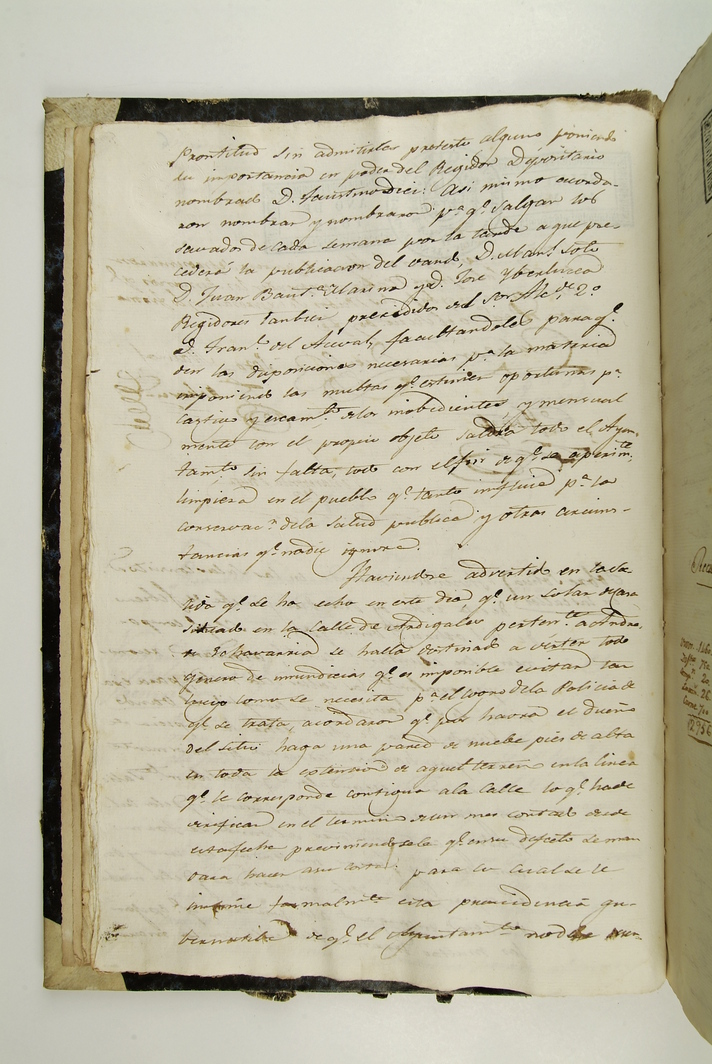 Prontitud sin admitirles pretesto alguno poniendo
su importancia en poder del Regidor Depositario
nombrado D. Faustino Diez: Asi mismo acorda-
ron nombrar y nombraron pa. qe. salgan los
savados de cada semana por la tarde a que pre-
cederá la publicacion del vando, D. Manl. Soto
D. Juan Baut.a Marina y D. José Yberlucea
Regidores tambien precedidos del Sor. Alc.de 2.o
D. Fran.o del Acival, facultandoles para q.e
den las disposiciones necesarias pa. la materia
imponiendo las multas qe. estimen oportunas pa.
castigo y escarm.to de los inobedientes, y mensual
mente con el propio objeto saldrá todo el Ayun-
tam.to sin falta, todo con el fin de q.e
limpieza en el pueblo qe. tanto influye pa. la
conservac.n de la salud publica y otras circuns-
tancias qe. nadie ignora.
Haviendose advertido en la sa-
lida qe. se ha echo en este dia, qe. un solar
situado en la Calle de Ardigales perten.te a Andre-
s Echavarria se halla destinado a verter todo
genero de inmundicias qe. es imposible evitar tan
como se necesita pa. el de la Policia de
qe. se trata, acordaron qe. por haora el dueño
del sitio haga una pared de nuebe pies de alta
en toda la estension de aquel terreno en la linea
qe. le corresponde contigua a la Calle lo qe. ha de
verificar en el termino de un mes contado desde
esta fecha previniendosele qe. en su defecto se man-
dara hacer a su costa: para lo cual se le
formalm.te esta providencia gu-
bernatiba de qe. el Ayuntam.to